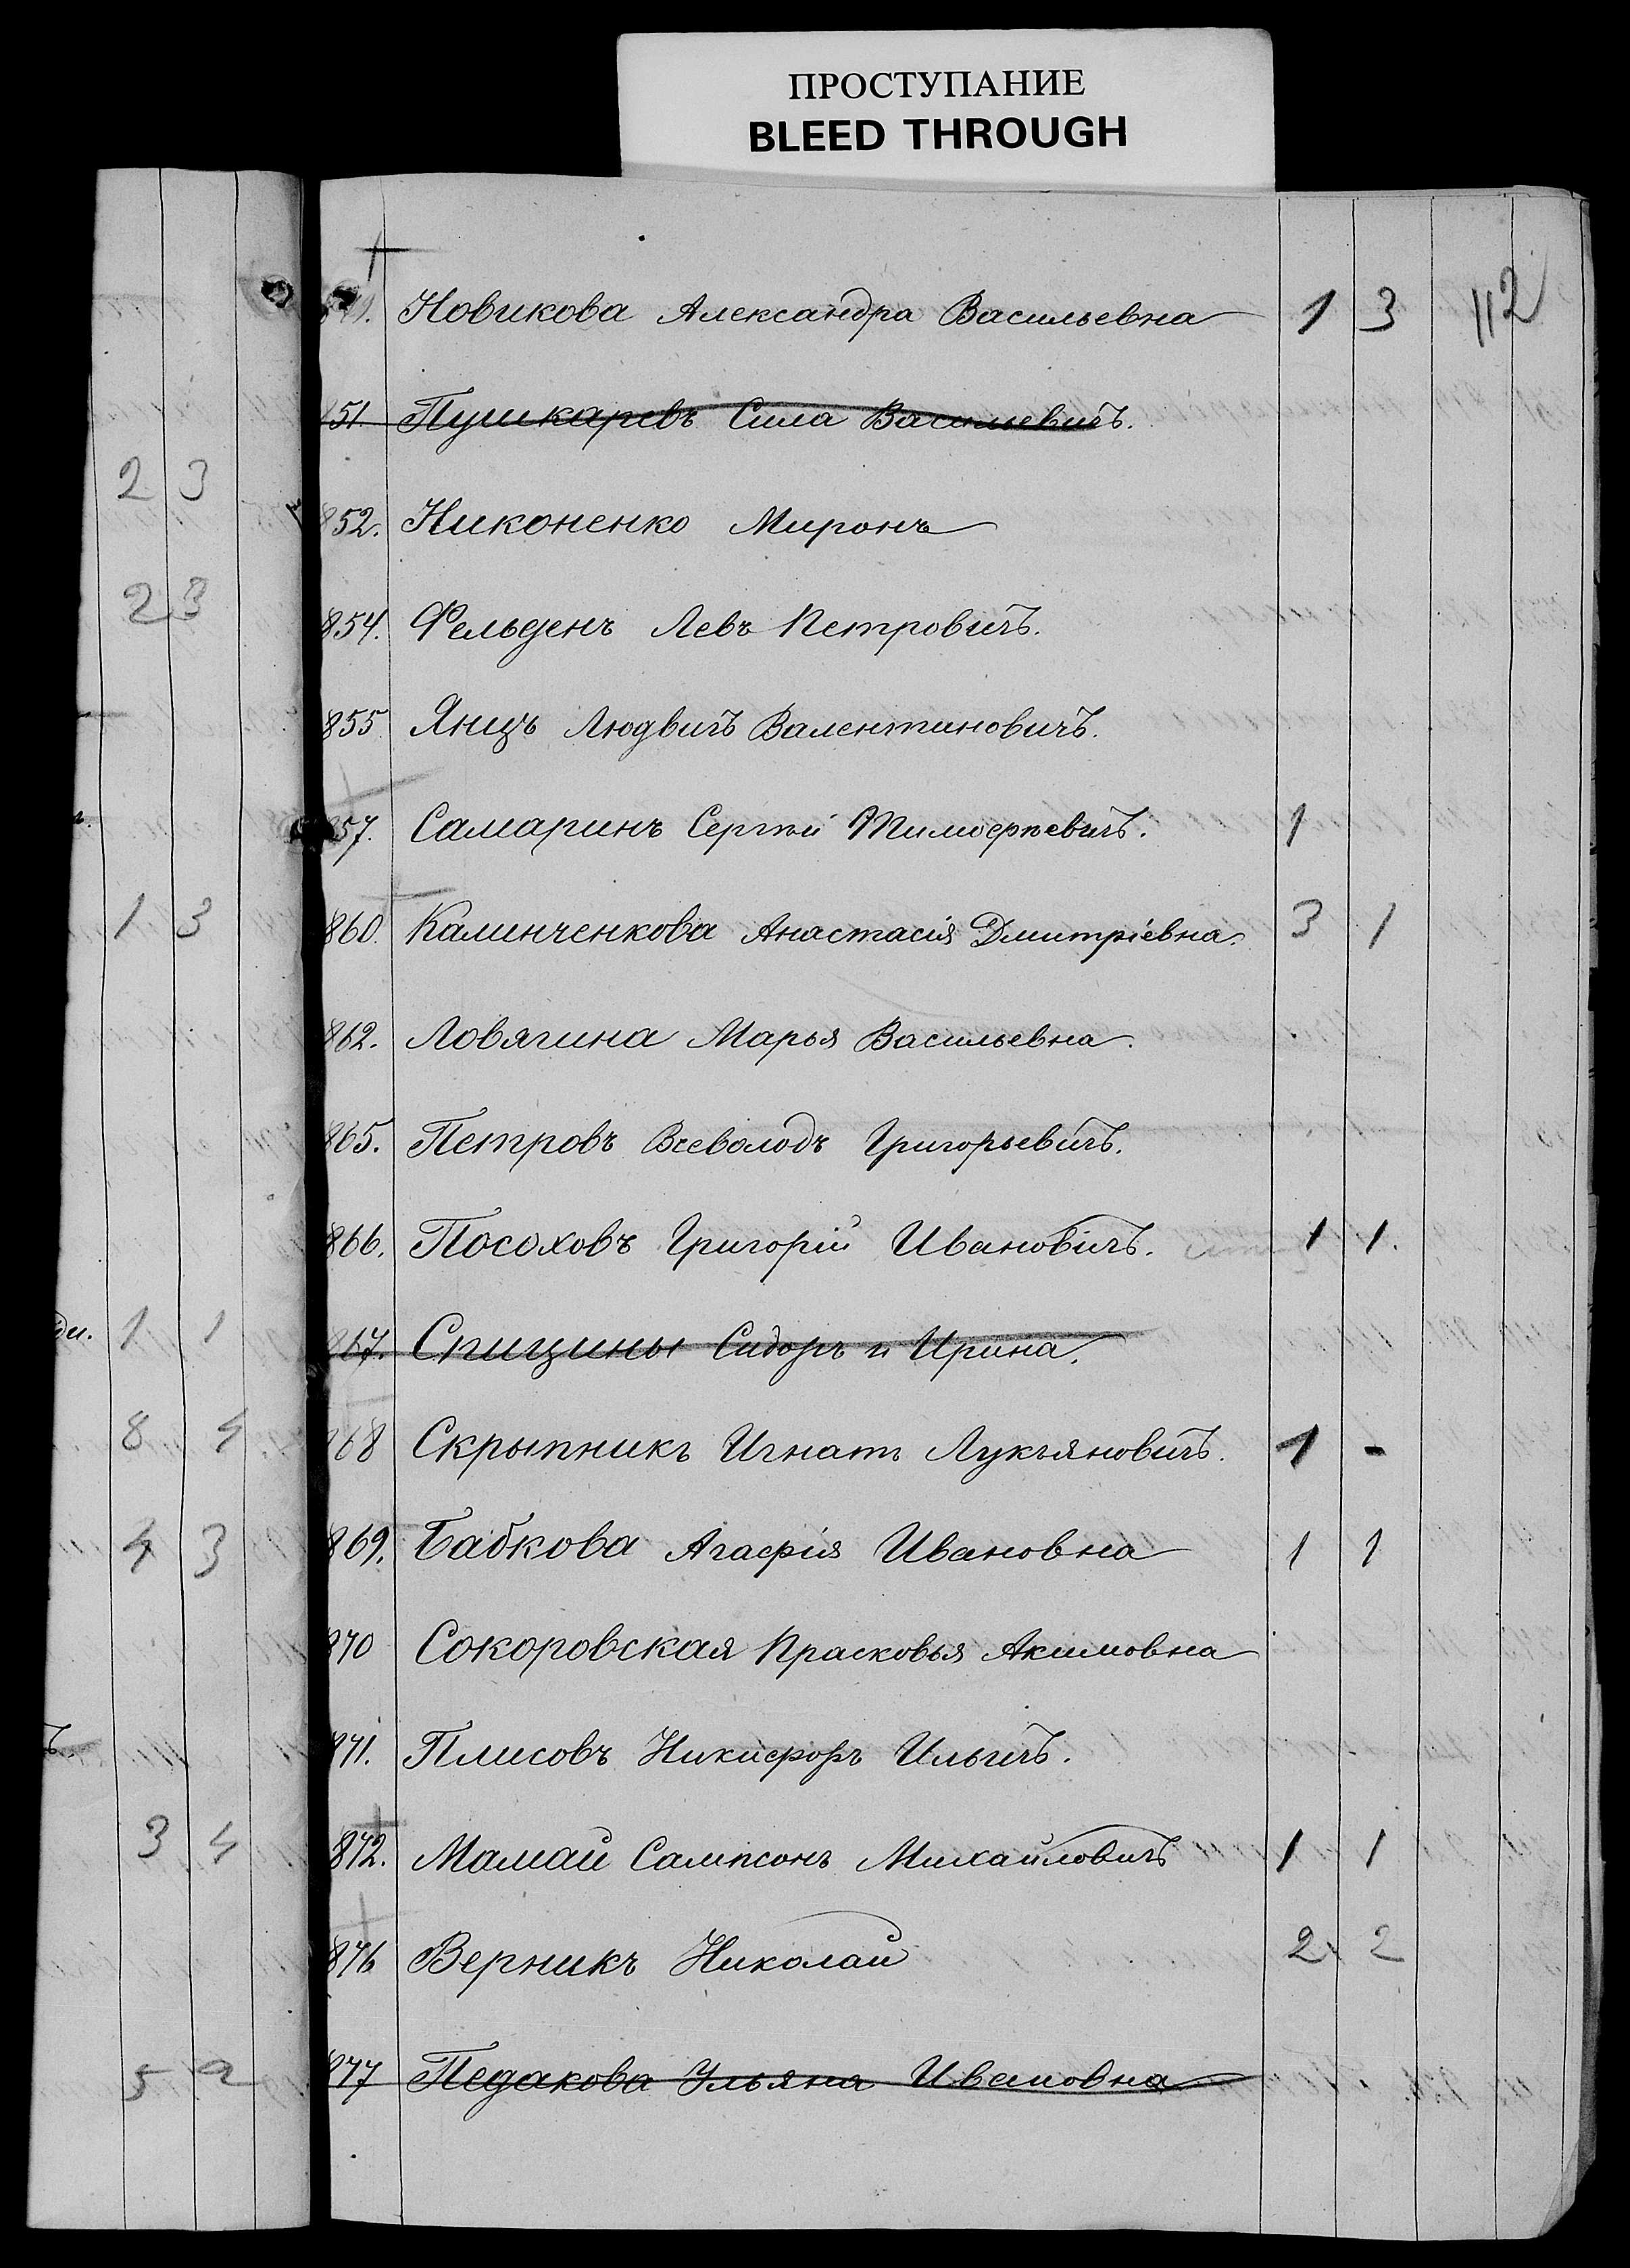 ПРОСТУПАНИЕ
BLEED THROUGH
Новикова Александра Васильевна 1 3 112
851. Пушкаревъ Сила Васильевичъ.
2 3
852. Никоненко Миронъ
2 3
854. Фельденъ Левъ Петровичъ.
855. Яницъ Людвигъ Валентиновичъ.
857. Самаринъ Сергѣй Тимоѳеевичъ. 1
1 3
860. Калинченкова Анастасія Дмитріевна. 3 1
862. Ловягина Марья Васильевна.
865. Петровъ Всеволодъ Григорьевичъ.
866. Посоховъ Григорій Ивановичъ. 1 1.
1 1
867. Спицины Сидоръ и Ирина.
8 4
868 Скрыпникъ Игнатъ Лукьяновичъ. 1 -
4 3
869. Бабкова Агафія Ивановна 1 1
870 Сокоровская Прасковья Акимовна
871. Плисовъ Никифоръ Ильичъ.
3 4
872. Мамай Сампсонъ Михайловичъ 1 1
876 Верникъ Николай 2 2
5 2
877 Педакова Ульяна Ивановна